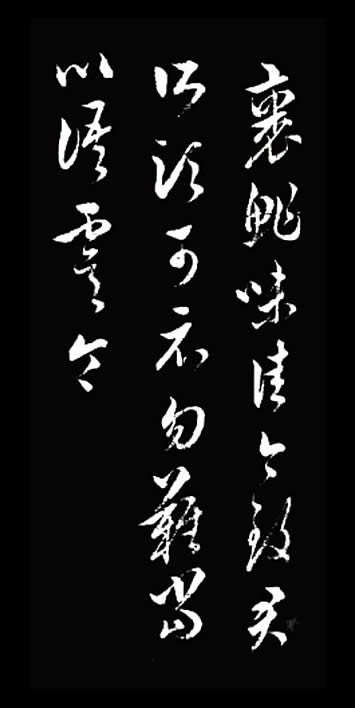 裹鮓味佳今致君
所須可示勿難當
以語虞令